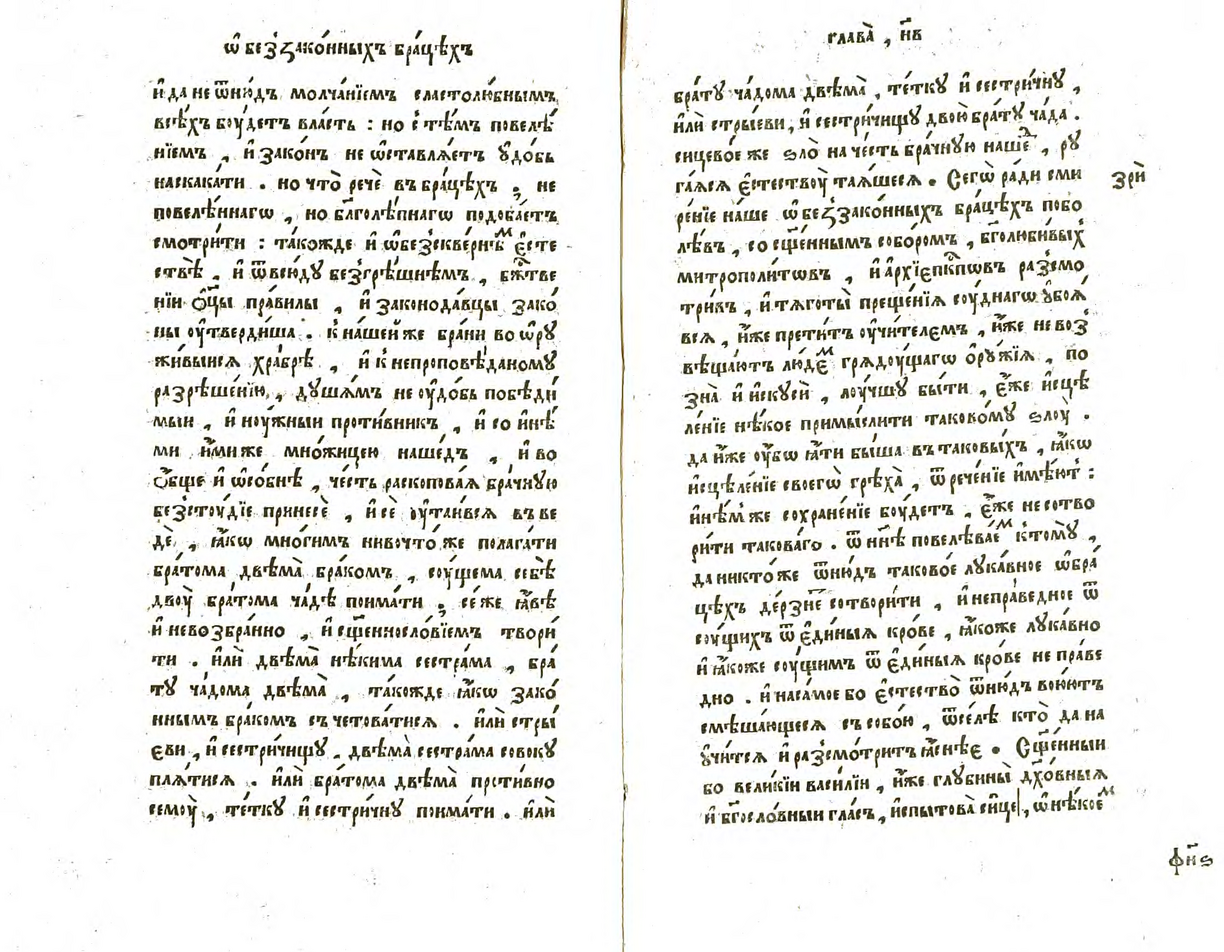 ѡ҆ беззако́нныхъ бра́цѣхъ
и҆ да не ѿню́дъ молча́нїемъ сластолю́бнымъ,
всѣ́хъ бꙋ́детъ вла́сть : но с̾ тѣ́мъ повелѣ́
нїемъ , и҆ зако́нъ не ѡ҆ставлѧ́етъ ᲂу҆до́бь
наскака́ти . но что̀ рече̏ въ бра́цѣхъ ; не
повелѣ́ннагѡ , но бл҃голѣ́пнагѡ подоба́етъ
смотри́ти : та́кожде и҆ ѡ҆ безскве́рнѣмъ є҆сте
ствѣ̀ , и҆ ѿвсю́дꙋ безгрѣ́шнѣмъ , бж҃тве
нїи ѻ҆ц҃ы̀ пра́вилы , и҆ законода́вцы зако́
ны ᲂу҆тверди́ша . к̾ на́шей же бра́ни во ѡ҆рꙋ
жи́выисѧ хра́брѣ , и҆ к̾ непроповѣ́даномꙋ
разрѣше́нїю , дꙋша́мъ не ᲂу҆до́бь побѣди́
мыи , и҆ нꙋ́жныи проти́вникъ , и҆ со и҆нѣ́
ми и҆́миже мно́жицею наше́дъ , и҆ во
ѻ҆́бще и҆ ѡ҆со́бнѣ , че́сть раскопова́ѧ бра́чнꙋю
безстꙋ́дїе принесѐ , и҆ сѐ ᲂу҆таи́всѧ въ ве
дѐ , ꙗ҆́кѡ мно́гимъ ни во что́ же полага́ти
бра́тома двѣ́ма бра́комъ , сꙋ́щема себѣ̀
двоꙋ̀ бра́тома ча́дѣ поима́ти ; се́ же ꙗ҆́вѣ
и҆ невозбра́нно , и҆ сщ҃еннословїемъ твори́
ти . и҆лѝ двѣ́ма нѣ́кима сестра́ма , бра́
тꙋ ча́дома двѣ́ма̀ , та́кожде ꙗ҆́кѡ зако́
ннымъ бра́комъ съчетова́тисѧ . и҆лѝ стры́
еви , и҆ сестри́чищꙋ , двѣ́ма сестра́ма совокꙋ
плѧ́тисѧ . и҆лѝ бра́тома двѣ́ма̀ проти́вно
семꙋ̀ , те́ткꙋ и҆ сестри́чнꙋ поима́ти . и҆лѝ
глава̀ , н҃в
бра́тꙋ ча́дома двѣ́ма̀ , те́ткꙋ и҆ сестри́чнꙋ ,
и҆лѝ стрыеви , и҆ сестри́чищꙋ двою̀ бра́тꙋ ча́да .
сицево́е же ѕло̀ на че́сть бра́чнꙋю на́ше , рꙋ
га́ѧсѧ є҆стествꙋ̀ таѧ́шесѧ . Сегѡ̀ ра́ди сми
ре́нїе на́ше ѡ҆ беззако́нныхъ бра́цѣхъ побо
лѣ́въ , со сщ҃е́ннымъ собо́ромъ , бг҃олюби́выхъ
митрополи́тѡвъ , и҆ а҆рхїепⷭ҇кпѡвъ разсмо
три́въ , и҆ тѧготы̀ преще́нїѧ сꙋ́днагѡ ᲂу҆боѧ́
всѧ , и҆́же прети́тъ ᲂу҆чи́телемъ , и҆́же не воз
вѣща́ютъ лю́демъ грѧдꙋ́щагѡ ѻ҆рꙋ́жїѧ , по
зна̀ и҆ и҆скꙋсѝ , лꙋ́чшꙋ бы́ти , є҆́же и҆сцѣ
ле́нїе нѣ́кое примы́слити таково́мꙋ ѕлꙋ̀ .
да и҆́же ᲂу҆́бѡ ꙗ҆́ти бы́ша въ таковы́хъ , ꙗ҆́кѡ
и҆сцѣле́нїе своегѡ̀ грѣха̀ , ѿрече́нїе и҆мѣ́ютъ :
и҆нѣ́м же сохране́нїе бꙋ́детъ , є҆́же не сотво
ри́ти такова́го . ѿ нн҃ѣ повелѣва́емъ к̾томꙋ̀ ,
да никто́же ѿню́дъ таково́е лꙋка́вное ѡ҆ бра́
цѣхъ де́рзне сотвори́ти , и҆ непра́ведное ѿ
сꙋ́щихъ ѿ є҆ди́ныѧ кро́ве , ꙗ҆́коже лꙋка́вно
и҆ ꙗ҆́коже сꙋ́щимъ ѿ є҆ди́ныѧ кро́ве не пра́ве
дно . и҆ на са́мое бо є҆стество̀ ѿню́дъ вою́ютъ
смѣша́ющесѧ съ собо́ю , ѿсе́лѣ кто̀ да на
ᲂу҆чи́тсѧ и҆ разсмо́тритъ ꙗ҆́снѣе . Сщ҃е́нныи
бо вели́кїи васи́лїи , и҆́же глꙋбины̀ дх҃о́вныѧ
и҆ бг҃осло́вныи гла́съ , и҆спытова̀ си́це , ѡ҆ нѣ́коемъ
зрѝ
ф҃нѕ